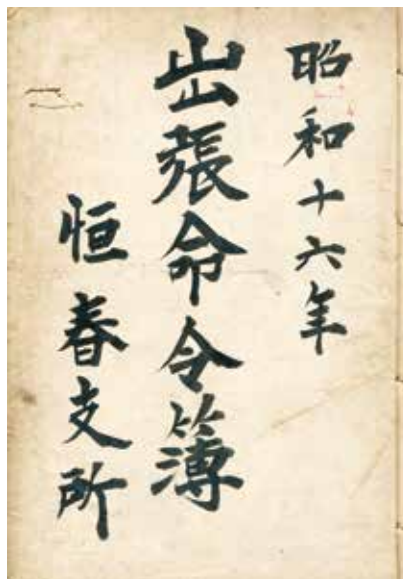 昭和十六年
出張命令簿
恒春支所